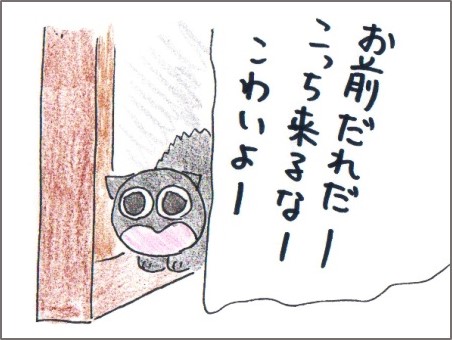 お前だれだー
こっち来るなー
こわいよー